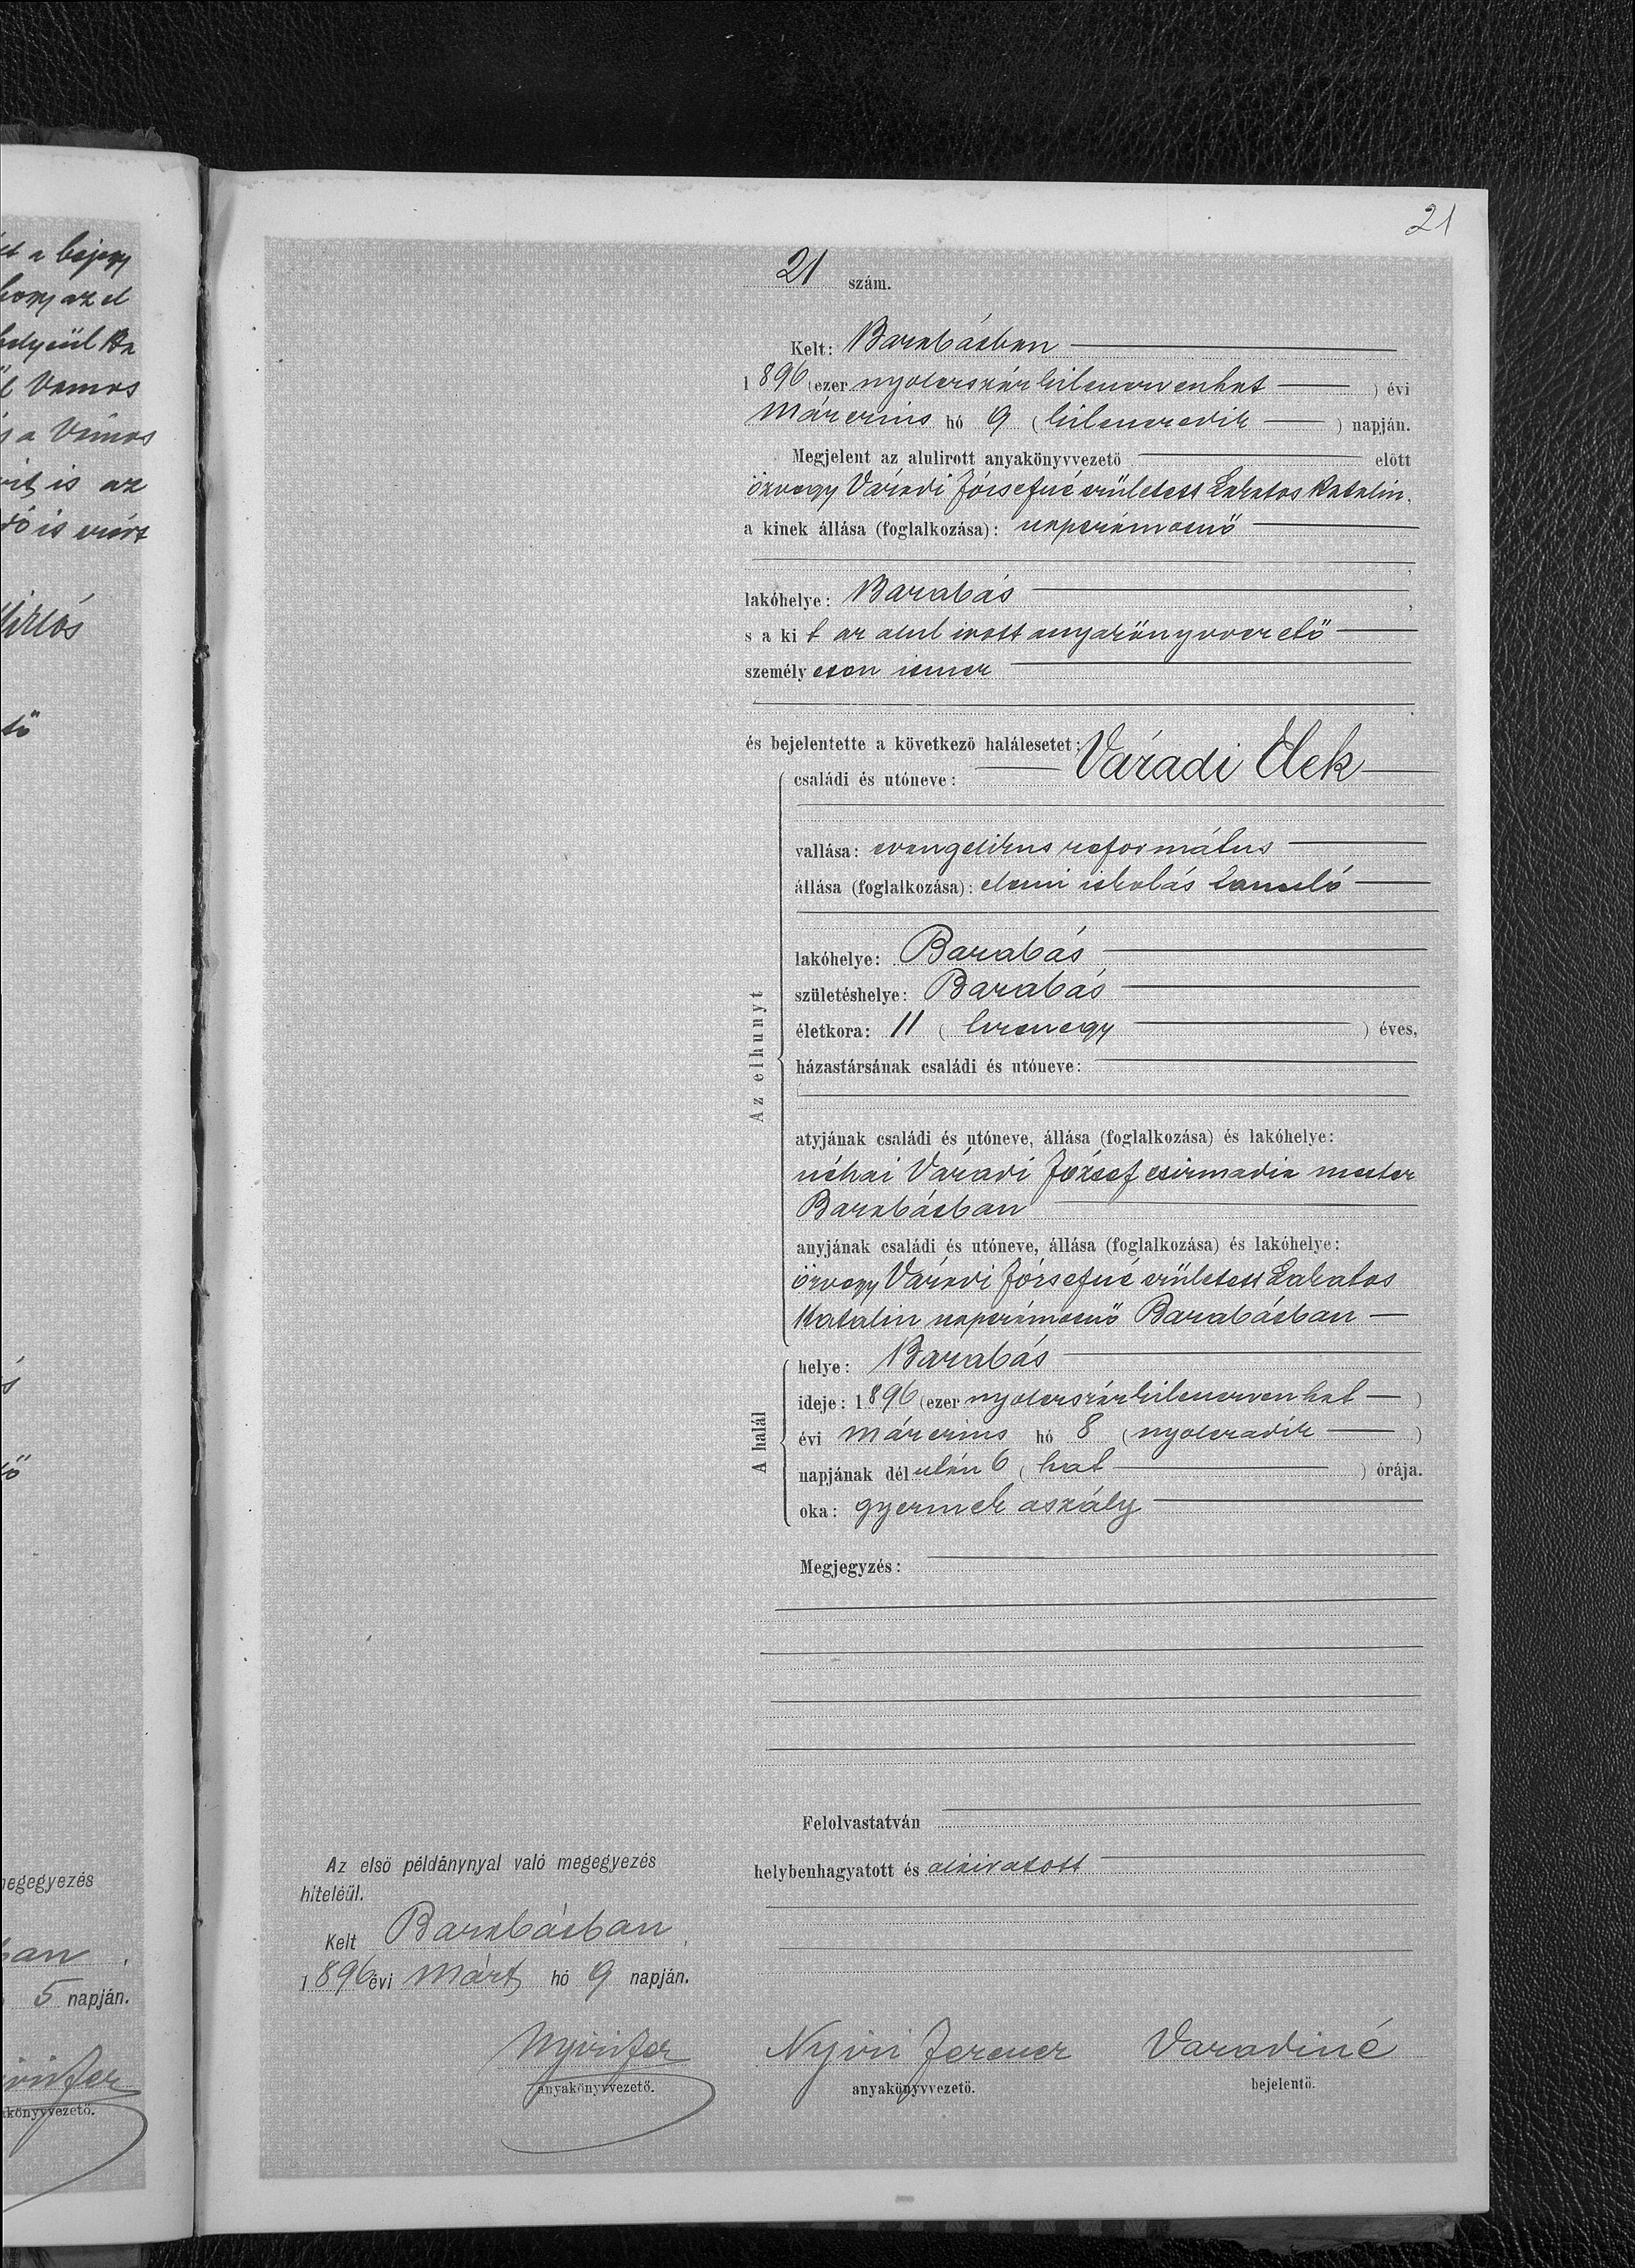 21
21 szám.
Kelt: Barabásban
1896 (ezer nyolczszázkilenczvenhat) évi
márczius hó 9 (kilenczedik) napján.
Megjelent az alulirott anyakönyvvezető előtt
özvegy Váradi Józsefné született Lakatos Katalin,
a kinek állása (foglalkozása): napszámosnő
lakóhelye: Barabás,
s a kit az alul irott anyakönyvvezető
személyesen ismer
és bejelentette a következő halálesetet:
családi és utóneve: Váradi Elek
vallása: evangelikus református
állása (foglalkozása): elemi iskolás tanuló
lakóhelye: Barabás
születéshelye: Barabás
életkora: 11 (tizenegy) éves,
házastársának családi és utóneve:
Az elhunyt
atyjának családi és utóneve, állása (foglalkozása) és lakóhelye:
néhai Váradi József csizmadia mester
Barabásban
anyjának családi és utóneve, állása (foglalkozása) és lakóhelye:
özvegy Váradi Józsefné született Lakatos
Katalin napszámosnő Barabásban
A halál
helye: Barabás
ideje: 1896 (ezer nyolczszázkilenczvenhat)
évi márczius hó 8 (nyolczadik)
napjának délután 6 (hat) órája.
oka: gyermek aszály
Megjegyzés:
Felolvastatván
helybenhagyatott és aláiratott
Az első példánynyal való megegyezés
hiteléül.
Kelt Barabásban,
1896 évi Márt hó 9 napján.
Nyiri Fer
anyakönyvvezető.
Nyiri Ferencz
anyakönyvvezető.
Varadiné
bejelentő.
a bejegy
hogy az el
helyéül Ba
Vámos
a Vámos
is az
is
tő
megegyezés
ban,
5 napján.
anyakönyvvezető.